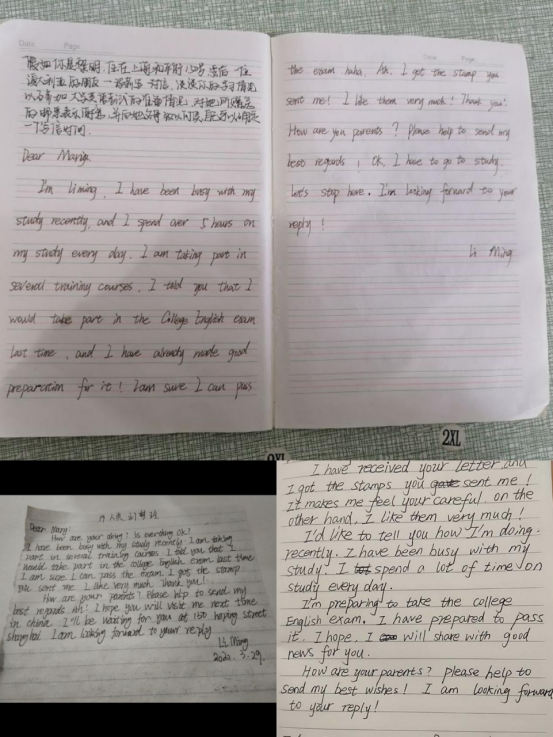 Date. Page.
假如你是李明,住在上海和平街150号,
一下写信时间.
Dear Maria,
I'm liming, I have been busy with my
study recently, and I spend over 5 hours on
my study every day. I am taking part in
several training courses. I told you that I
would take part in the College English exam
last time, and I have already made good
preparation for it! I am sure I can pass
the exam haha. Ah, I got the stamp you
sent me! I like them very much! Thank you!
How are you parents? Please help to send my
best regards, OK, I have to go to study.
Let's stop here. I'm looking forward to your
reply!
Li Ming
2XL
Dear Mary:
How are your doing? Is everything Ok?
I have been busy with my study recently. I am taking
part in several training courses. I told you that I
would take part in the college english exam last time
I am sure I can pass the exam. I got the stamp
you sent me. I like very much. Thank you!
How are your parents? Please help to send my
best regards Ah! I hope you will visit me next time
in china. I'll be waiting for you at 150 heping street
shanghai. I am looking forward to your reply
Li Ming
2020.3.29.
I have received your letter and
I got the stamps you sent me!
It makes me feel your careful on the
other hand, I like them very much!
I'd like to tell you how I'm doing.
recently. I have been busy with my
study. I spend a lot of time on
study every day.
I'm preparing to take the college
English exam. I have prepared to pass
it. I hope, I will share with good
news for you.
How are your parents? please help to
send my best wishes! I am looking forward
to your reply!